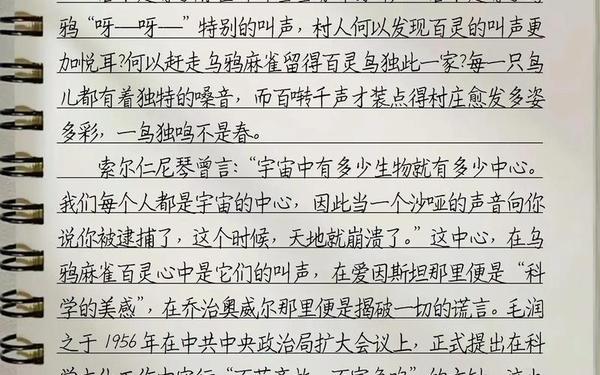 鸦“呀——呀——”特别的叫声，村人何以发现百灵的叫声更
加悦耳？何以赶走乌鸦麻雀留得百灵鸟独此一家？每一只鸟
儿都有着独特的嗓音，而百啭千声才装点得村庄愈发多姿
多彩，一鸟独鸣不是春。
索尔仁尼琴曾言：“宇宙中有多少生物就有多少中心。
我们每个人都是宇宙的中心，因此当一个沙哑的声音向你
说你被逮捕了，这个时候，天地就崩溃了。”这中心，在乌
鸦麻雀百灵心中是它们的叫声，在爱因斯坦那里便是“科
学的美感”，在乔治奥威尔那里便是揭破一切的谎言。毛润
之于1956年在中共中央政治局扩大会议上，正式提出在科